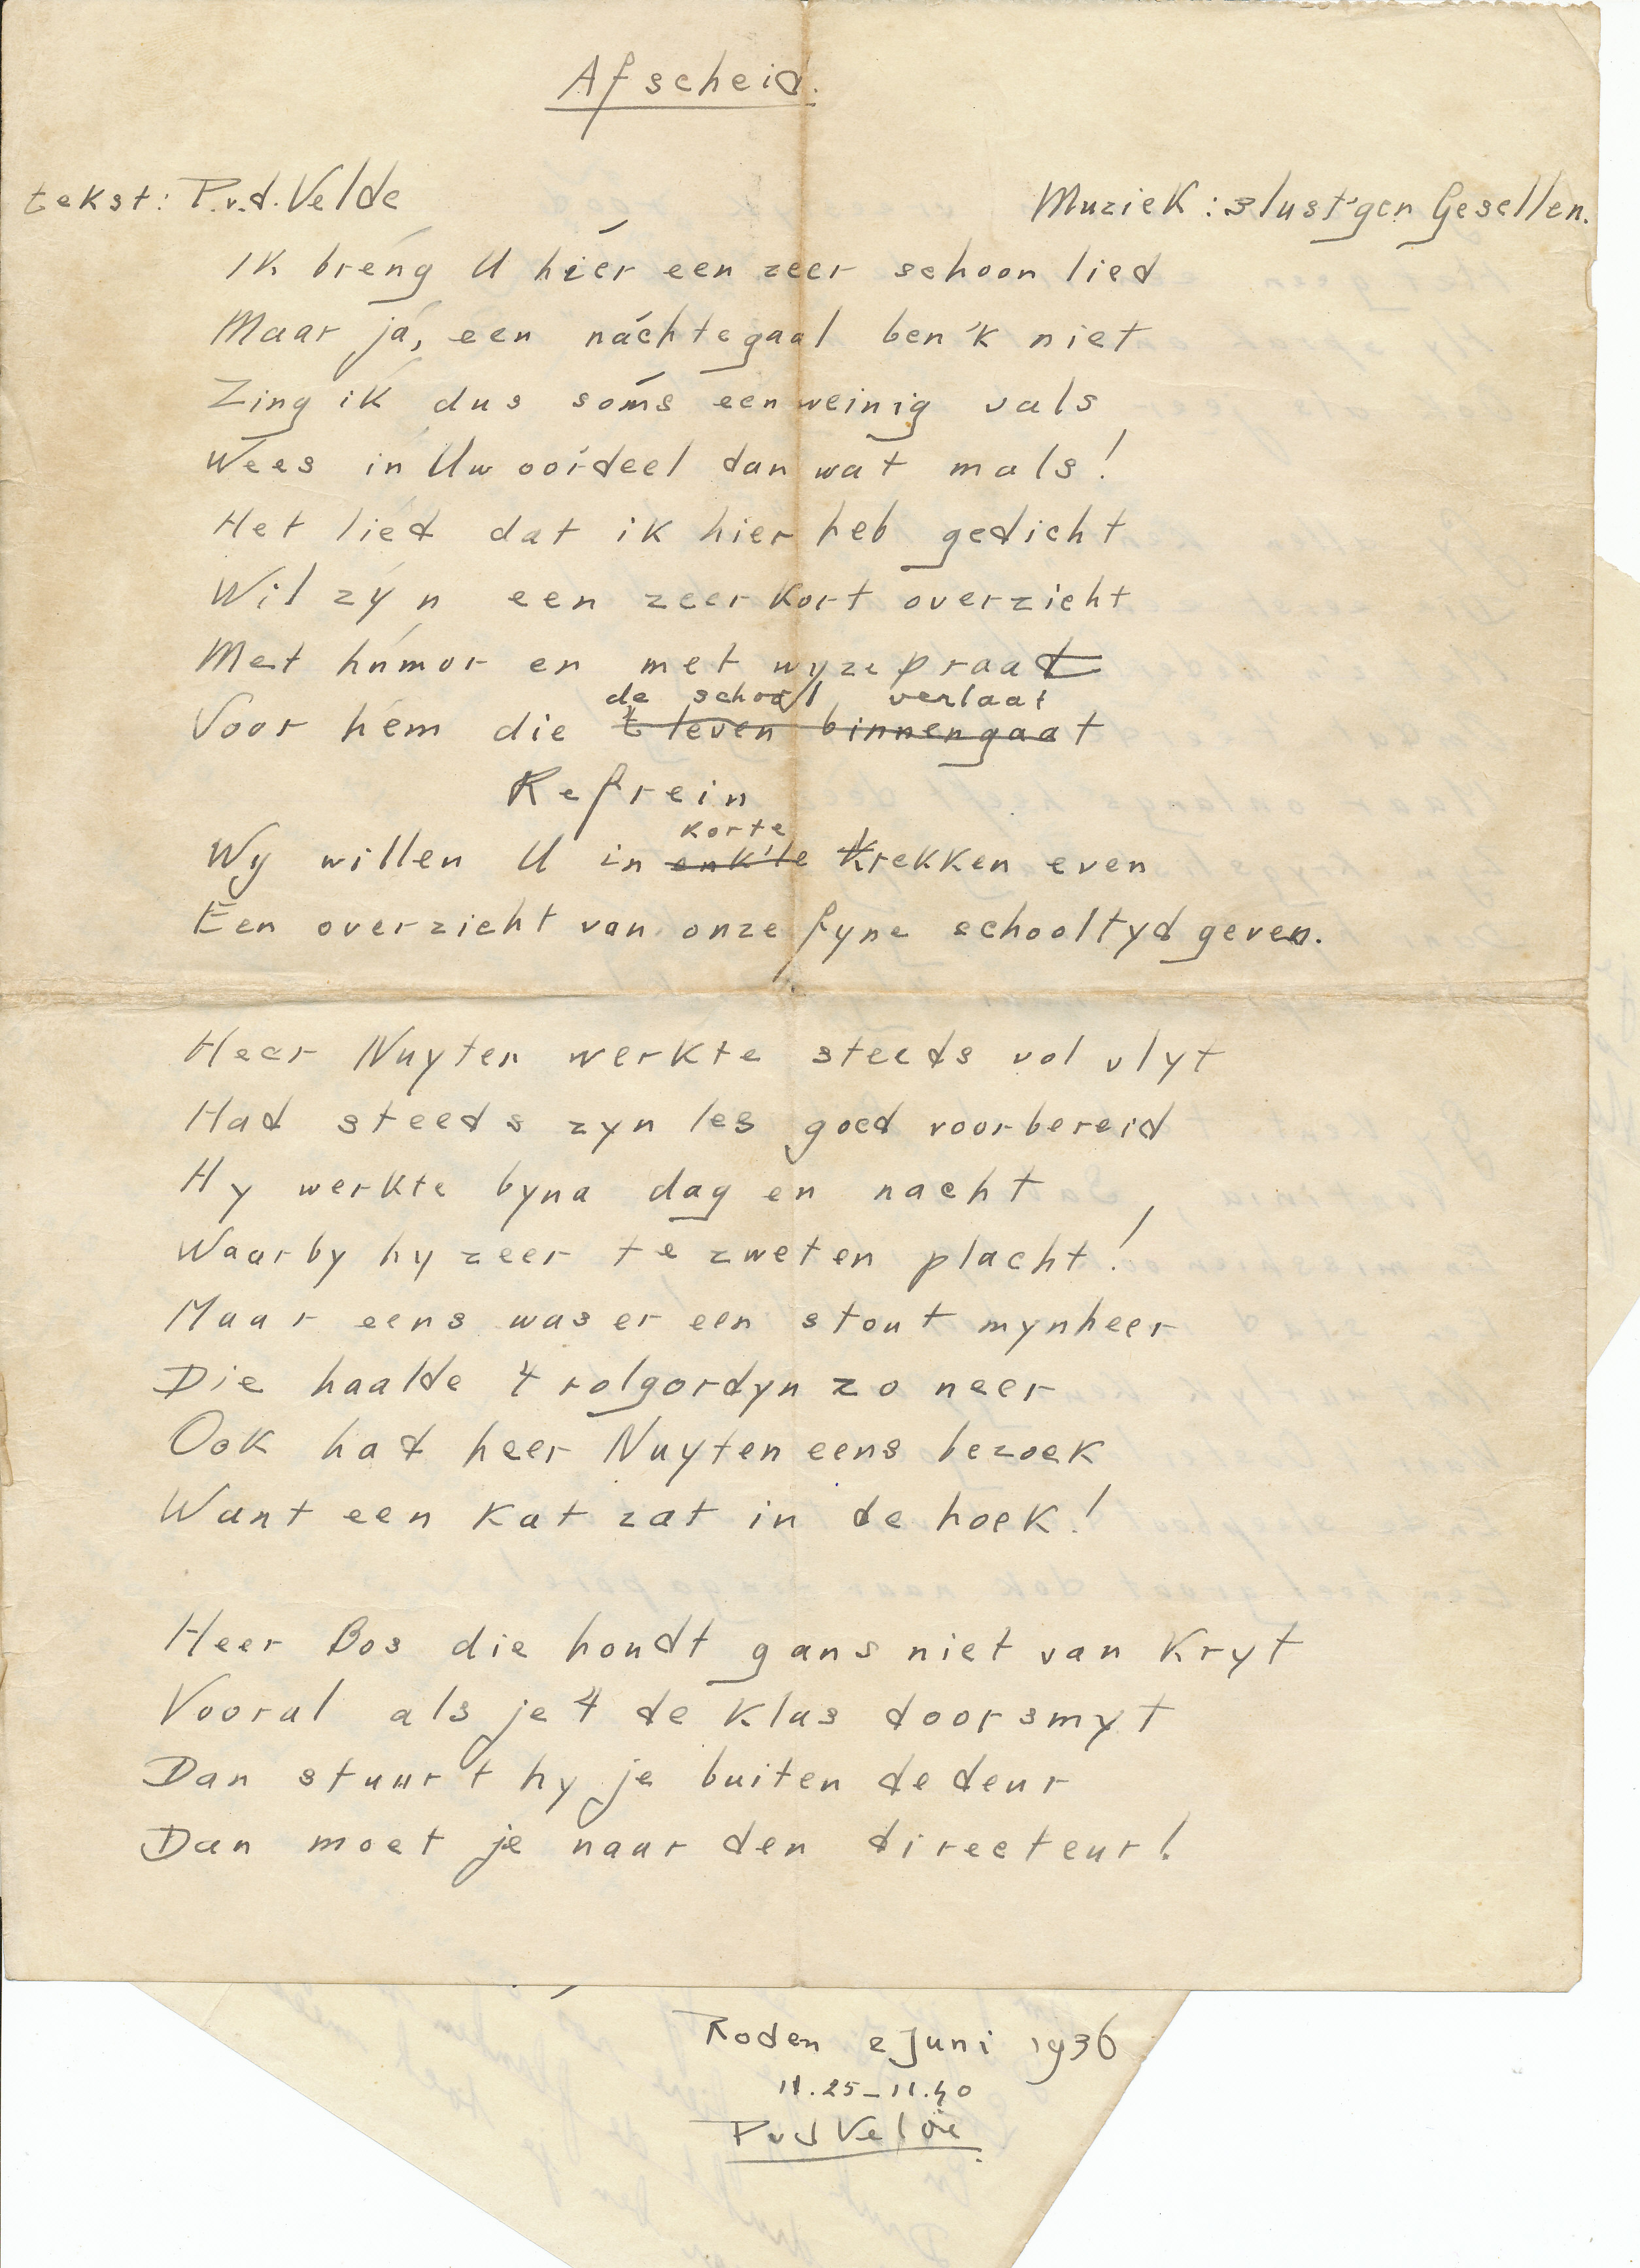 Afscheid.
tekst: P.v.d. Velde
Muziek: 3 lust'gen Gesellen.
Ik breng U hier een zeer schoon lied
Maar ja, een nachtegaal ben 'k niet
Zing ik dus soms een weinig vals
Wees in Uw oordeel dan wat mals!
Het lied dat ik hier heb gedicht
Wil zyn een zeer kort overzicht
Met humor en met wyze praat
de school verlaat
Voor hem die 't leven binnengaat
Refrein
korte
Wy willen U in enk'le trekken even
Een overzicht van onze fyne schooltyd geven.
Heer Nuyten werkte steeds vol vlyt
Had steeds zyn les goed voorbereid
Hy werkte byna dag en nacht
Waarby hy zeer te zweten placht!
Maar eens was er een stout mynheer
Die haalde 't rolgordyn zo neer
Ook had heer Nuyten eens bezoek
Want een kat zat in de hoek!
Heer Bos die houdt gans niet van Kryt
Vooral als je 't de klas doorsmyt
Dan stuurt hy je buiten de deur
Dan moet je naar den directeur!
Roden 2 Juni 1936
11.25-11.40
PvdVelde